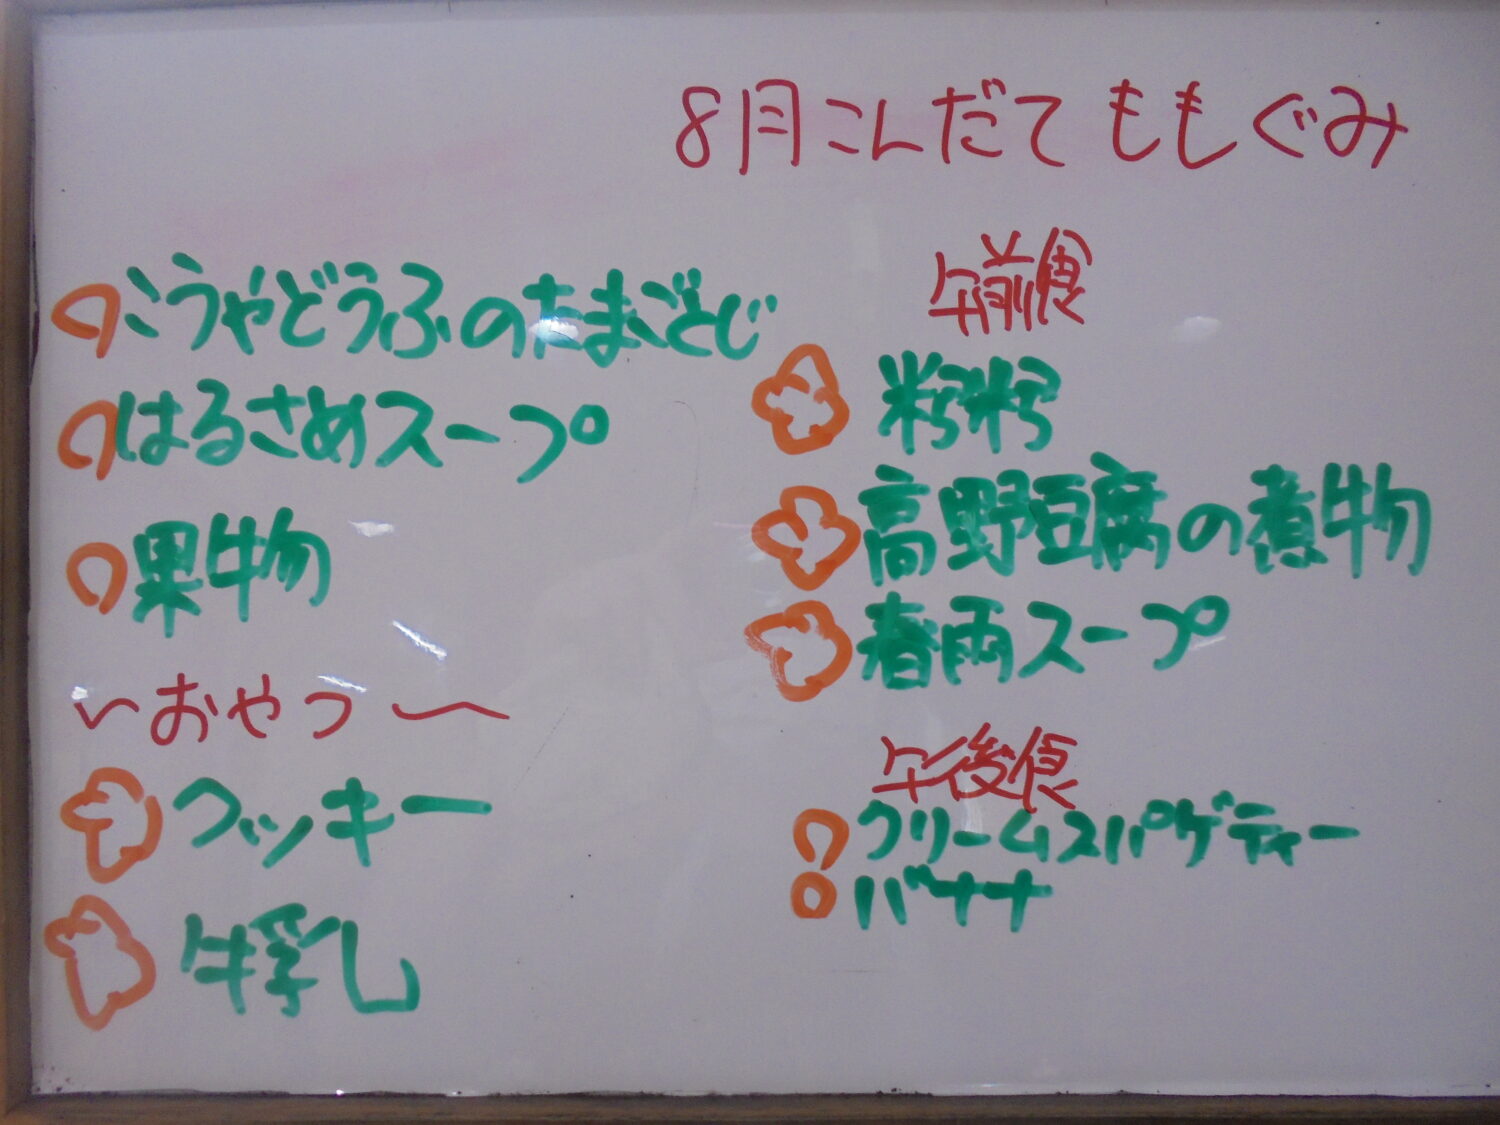 8月こんだて ももぐみ
こうやどうふのたまごとじ
はるさめスープ
果物
～おやつ～
クッキー
牛乳
午前食
高野豆腐の煮物
春雨スープ
午後食
クリームスパゲティー
バナナ